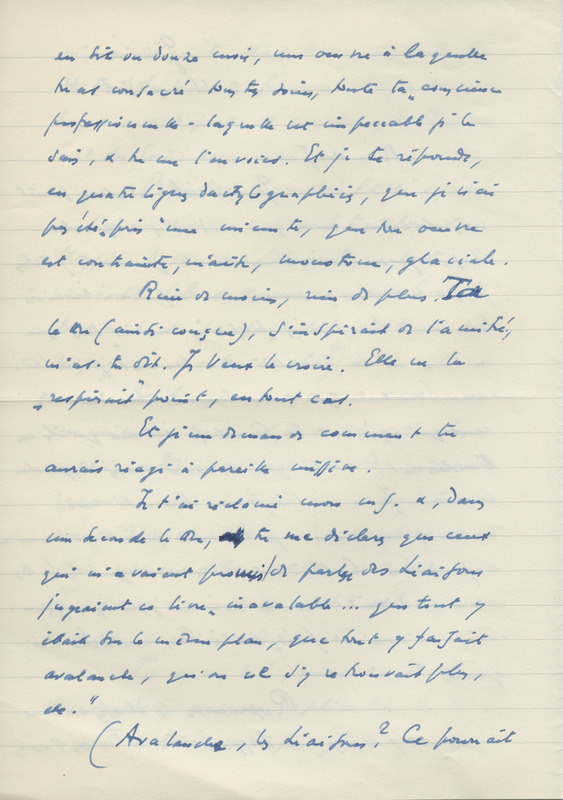 en dix ou douze mois, une œuvre à laquelle
tu as consacré tous tes soins, toute ta "conscience
professionnelle - laquelle est impeccable je le
sais, & tu me l'envoies. Et je te réponds,
en quatre lignes dactylographiées, que je n'ai
pas été "pris" une minute, que ton œuvre
est contrainte, monotone, glaciale.
Rien de moins, rien de plus. Ta
lettre (ainsi conçue), s'inspirait de l'amitié,
m'as-tu dit. Je veux le croire. Elle ne la
"respirait" point, en tout cas.
Et je me demande comment tu
aurais réagi à pareille missive.
Je t'ai réclamé mon ms. &, dans
une seconde lettre, tu me déclares que ceux
qui m'avaient promis de parler des Liaisons
jugeaient ce livre "inavalable... que tout y
était sur le même plan, que tout y faisait
avalanche, qu'on ne s'y retrouvait plus,
etc."
(Avalanche, les Liaisons? Ce pourrait